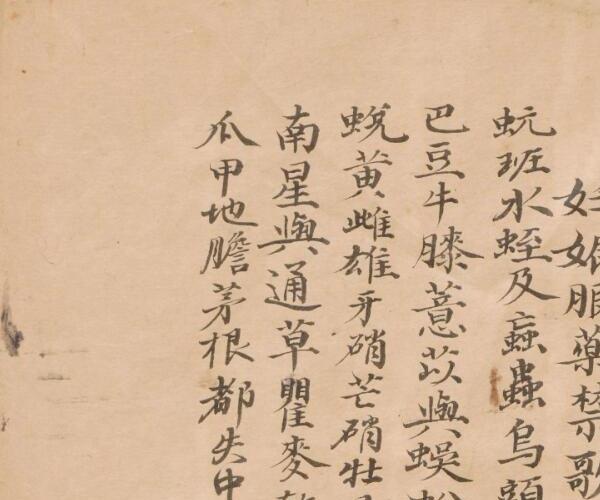 妊娠服藥禁歌
蚖班水蛭及䖟蟲烏頭
巴豆牛膝薏苡與蜈
蛻黃雌雄牙硝芒硝牡
南星與通草瞿麥
爪甲地膽茅根都失中